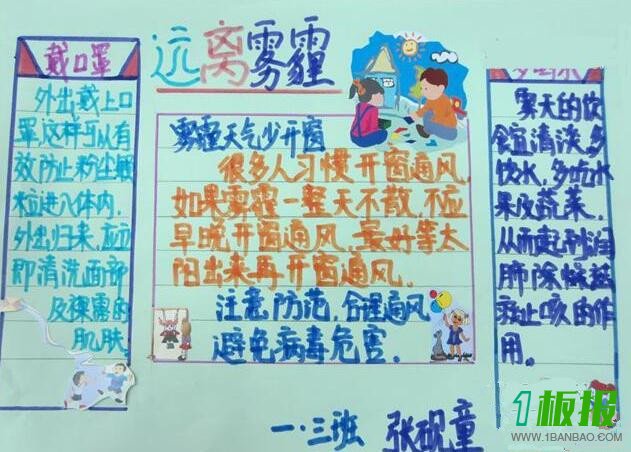 远离雾霾
戴口罩
外出戴上口
罩这样可以有
效防止粉尘颗
粒进入体内,
外出归来,应立
即清洗面部
及裸露的
肌肤。
雾霾天气少开窗
很多人习惯开窗通风,
如果雾霾一整天不散,不应
早晚开窗通风,最好等太
阳出来再开窗通风。
注意防范,合理通风
避免病毒危害。
雾天的饮
食宜清淡,多
饮水,多吃水
果及蔬菜,
从而起到润
肺除燥
止咳的作
用。
一·三班 张砚童
1板报
WWW.1BANBAO.COM